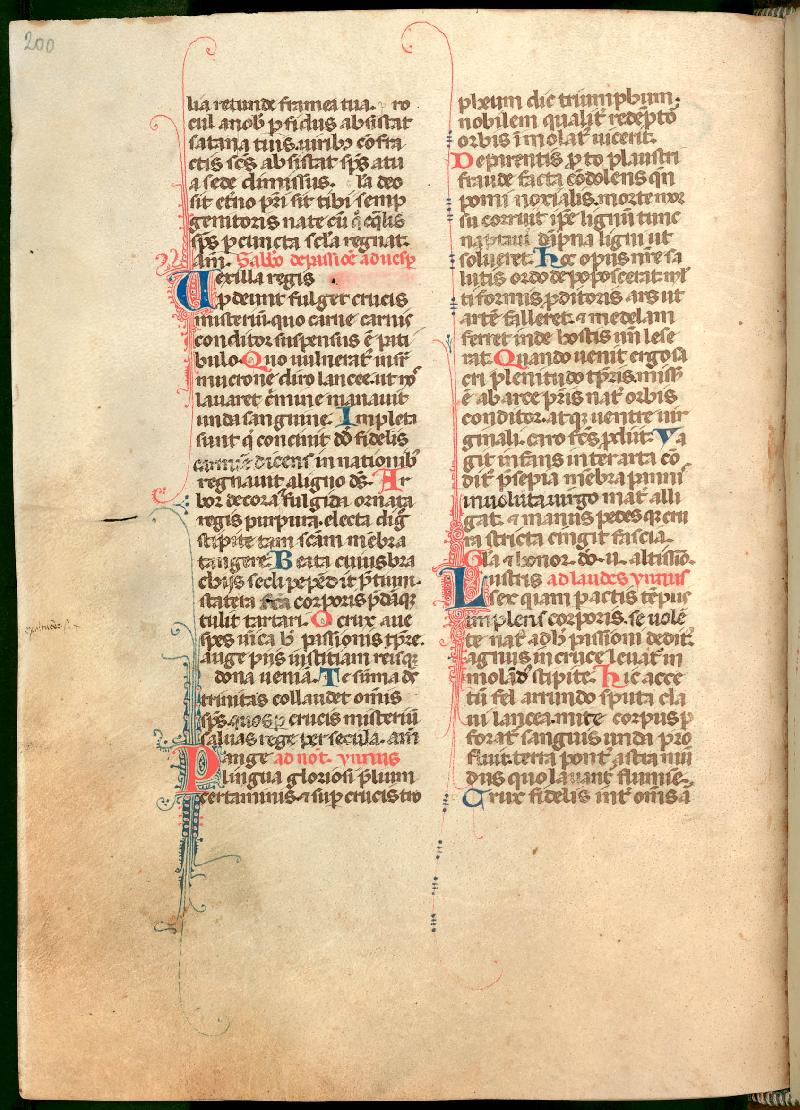 200
lia retunde framea tua. ro
cul a nob̄ p̄fidus absistat
satana tuis uirib; cōfra
ctis sc̄s absistat sp̄s a tu
a sede dimissus. l'a deo
sit et̄no pr̄i sit tibi semp
genitoris nate cū q̄ eq̄lis
sp̄s p cuncta sc̄la regnat.
am̄. Sabb̄o de passiōe ad uesp̄
Vexilla regis
p̄deunt fulget crucis
misteriū. quo carne carnis
conditor suspensus ē pati
bulo. Quo uulnerat᷑ insr̄
mucrone diro lancee. ut nos
lauaret c̄mine manauit
unda sanguine. Impleta
sunt q̄ concinit dō fidelis
carmīe dicens in nationib᷒
regnauit a ligno ds̄. Ar
bor decora fulgida ornata
regis purpura. electa digō
stipite tam scām mēbra
tangere. Beata cuiuſ bra
chiis secli pepēdit p̄tium.
statera fca corporis p̄dāq;
tulit tartari. O crux aue
spes unica b̄ passionis tp̄re.
auge piis iustitiam reisque
dona uenia. Te sūma ds̄
trinitas collaudet om̄is
sp̄s. quos p crucis misteriū
saluas rege per secula. am̄
Pange ad noct. ymnus
lingua gloriosi p̄lium
certaminis. ⁊ sup crucis tro
pheum dic triumphum.
nobilem qualit᷑ redēpto
orbis īmolat᷑ uicerit.
De parentis p̄toplaustri
fraude facta cōdolens qn̄
pomi noxialis. morte mor
su corruit ip̄e lignū tunc
notauit dāpna ligni ut
solueret. Hoc opus nr̄e sa
lutis ordo depoposcerat. ml̄
tiformis p̄ditoris ars ut
artē falleret. ⁊ medelam
ferret inde hostis un̄ lese
rat. Quando uenit ergo sa
cri plenitudo tp̄ris. miss᷒
ē ab arce pr̄is nat᷒ orbis
conditor. atq; uentre uir
ginali. caro fc̄s p̄diit. Va
git infans inter arta cō
dit᷒ p̄sepia mēbra panni᷒
inuoluta uirgo mat̄ alli
gat. ⁊ manus pedes q; cru
ra stricta cingit fascia.
Gl̄a ⁊ honor. dō. u. altissiō.
Lustris ad laudes ymnus
sex quiam p̄actis tēpus
implens corporis. se uolē
te nat᷒ ad b̄ passioni dedit᷒.
agnus in cruce leuat᷑ in
molād᷒ stipite. Hic acce
tū fel arrundo sputa cla
ui lancea. mite corpus p
forat᷑ sanguis unda pro
fluit. terra pont᷒ astra mū
dus quo lauant᷑ flumīe.
Crux fidelis int̄ om̄s a